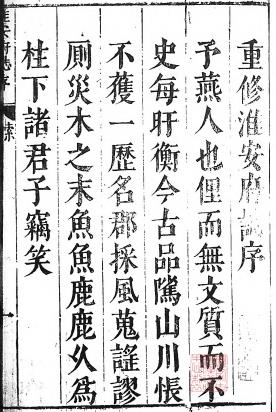 重修淮安府誌序
予燕人也俚而無文質而不
史每盱衡今古品隲山川悵
不獲一歷名郡採風蒐謠謬
厠災木之末魚魚鹿鹿久爲
柱下諸君子竊笑